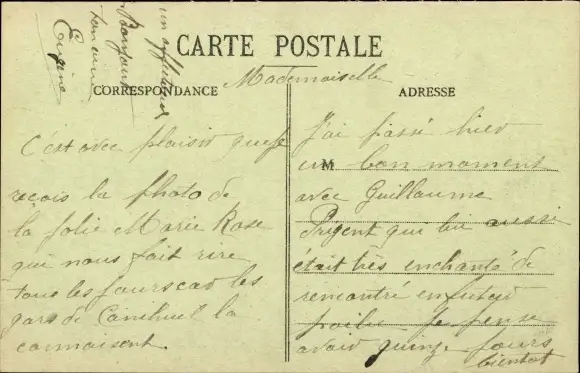 CARTE POSTALE
CORRESPONDANCE
ADRESSE
Mademoiselle
C'est avec plaisir que je
reçois la photo de
la jolie Marie Rose
qui nous fait rire
tous les jours car les
gars de Canihuel la
connaisent
J'ai passé hier
M
un bon moment
avec Guillaume
Prigent qui lui aussi
était très enchanté de
rencontré en futur
poilu je pense
avoir quinze jours
bientot
un affectueux
Bonjour
ton ami
Eugène